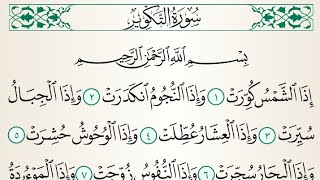 سُورَةُ التَّكْوِيرِ
بِسْمِ اللَّهِ الرَّحْمَٰنِ الرَّحِيمِ
إِذَا الشَّمْسُ كُوِّرَتْ ١ وَإِذَا النُّجُومُ انكَدَرَتْ ٢ وَإِذَا الْجِبَالُ
سُيِّرَتْ ٣ وَإِذَا الْعِشَارُ عُطِّلَتْ ٤ وَإِذَا الْوُحُوشُ حُشِرَتْ ٥
وَإِذَا الْبِحَارُ سُجِّرَتْ ٦ وَإِذَا النُّفُوسُ زُوِّجَتْ ٧ وَإِذَا الْمَوْءُۥدَةُ